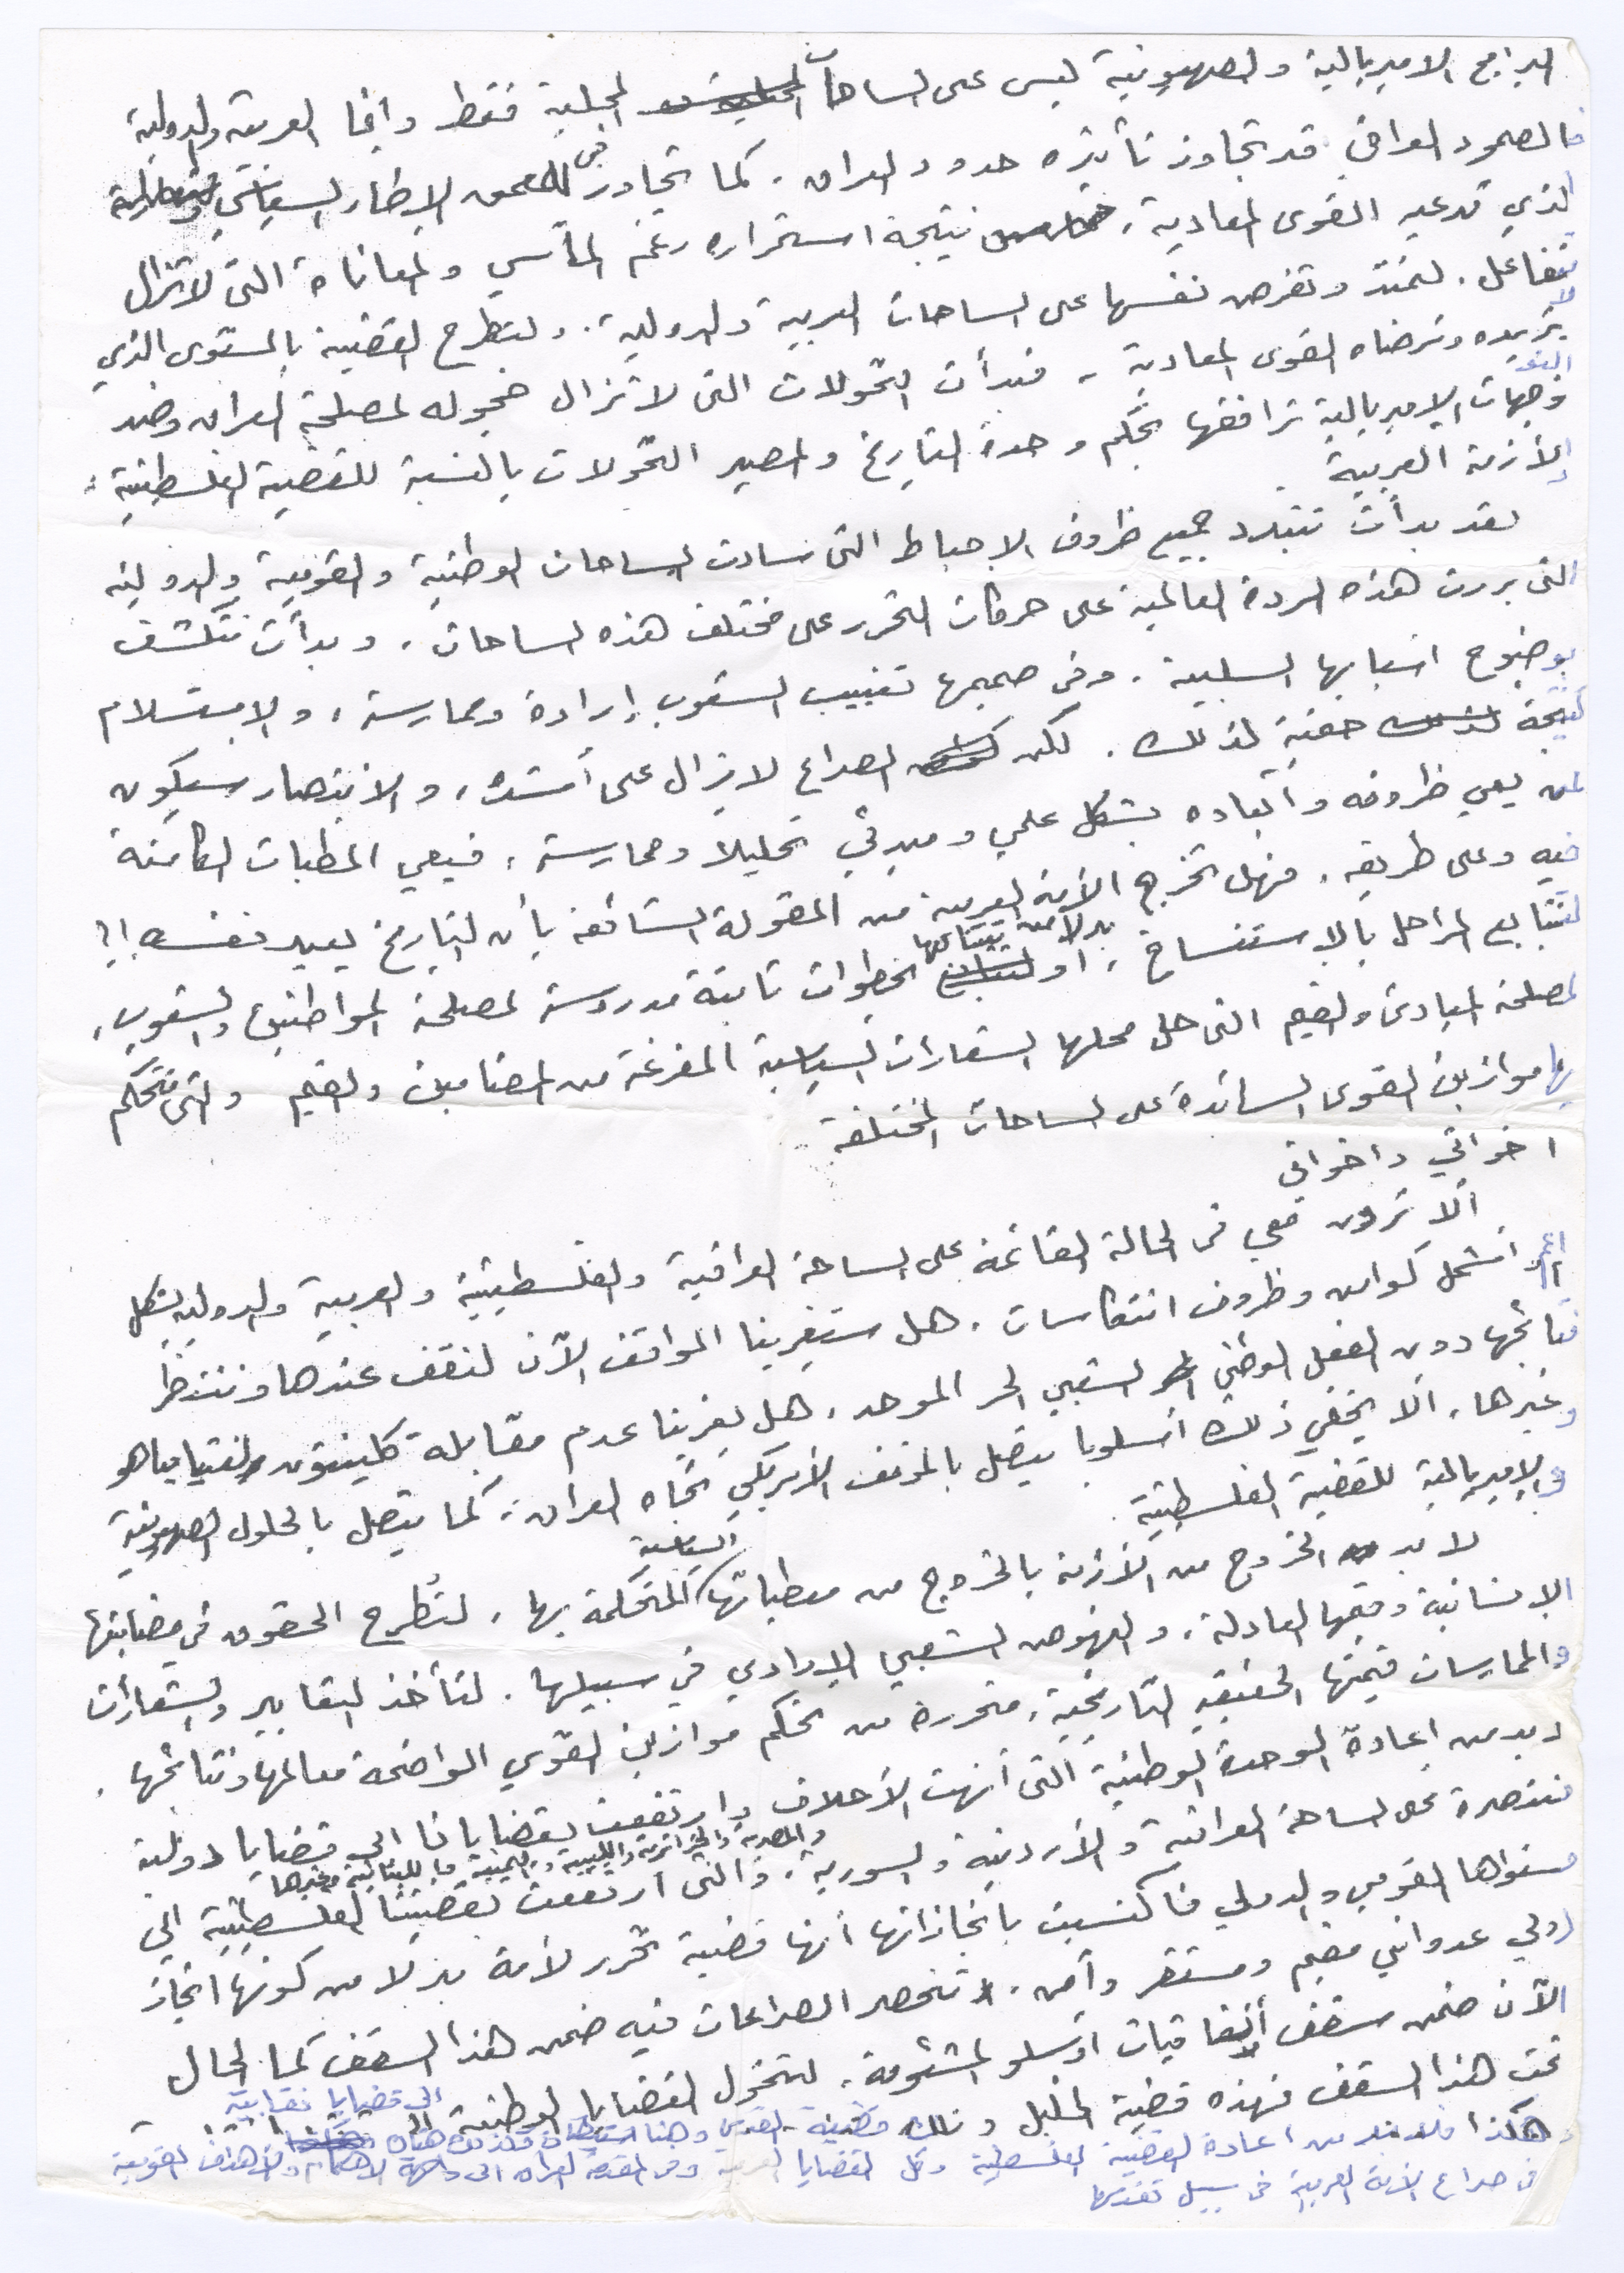 البرامج الامبريالية والصهيونية ليس على الساحات المحلية فقط وانما العربية والدولية
فالصمود العراقي قد تجاوز تأثيره حدود العراق، كما تجاوز في العمق الإطار السياسي
الذي تدعيه القوى المعادية، نتيجة استمراره رغم المآسي والمعاناة التي لا تزال
تتفاعل. لتمتد وتفرض نفسها على الساحات العربية والدولية. ولتطرح القضية بالمستوى الذي
لا تريده وترضاه القوى المعادية - فبدأت التحولات التي لا تزال خجوله لمصلحة العراق وضد
التوجهات الامبريالية ترافقها بحكم وحدة التاريخ والمصير التحولات بالنسبة للقضية الفلسطينية
والأزمة العربية.
لقد بدأت تتبدد جميع ظروف الاحباط التي سادت الساحات الوطنية والقومية والدولية
التي بررت هذه الردة العالمية على حركات التحرر على مختلف هذه الساحات، وبدأت تتكشف
بوضوح اسبابها السلبية. وفي صميمها تغييب الشعوب إرادة وممارسة، والاستسلام
نتيجة حتمية لذلك. لكن الصراع لا يزال على أشده، والانتصار سيكون
لمن يعي ظروفه وأبعاده بشكل علمي ومبدئي تحليلا وممارسة، فيعي المطبات الكامنة
فيه وعلى طريقه. فهل تخرج الأمة العربية من المقولة الشائعة بأن التاريخ يعيد نفسه!؟
لتتابع المراحل بالاستنساخ، او بدلا من تتابعها لخطوات ثابتة مدروسة لمصلحة المواطنين والشعوب،
لمصلحة المبادئ والقيم التي حل محلها الشعارات السياسية المفرغة من المضامين والقيم والتي تتحكم
بها موازين القوى السائدة على الساحات المختلفة.
اخواتي واخواني
ألا ترون معي في الحالة القائمة على الساحة العراقية والفلسطينية والعربية والدولية بشكل
أعم و اشمل كوامن وظروف انتكاسات. هل ستغرينا المواقف الآن لنقف عندها وننتظر
نتائجها دون الفعل الوطني الشعبي الحر الموحد. هل يغرينا عدم مقابلة كلينتون لنتنياهو
وغيرها، ألا يخفي ذلك أسلوبا يتصل بالموقف الأمريكي تجاه العراق، كما يتصل بالحلول الصهيونية
والامبريالية للقضية الفلسطينية.
لا بد الخروج من الأزمة بالخروج من معطياتها السياسية المتحكمة بها. لتُطرح الحقوق في مضامينها
الإنسانية وقيمها العادلة، والنهوض الشعبي الإرادي في سبيلها. لتأخذ التعابير والشعارات
والممارسات قيمتها الحقيقية التاريخية، متحررة من تحكم موازين القوى الواضحة معالمها ونتائجها.
لا بد من اعادة الوحدة الوطنية التي أنهت الأحلاف وارتفعت بقضايانا الى قضايا دولية
منتصرة على الساحة العراقية والأردنية والسورية والمصرية والجزائرية والليبية واليمنية واللبنانية وغيرها، والتي ارتفعت بقضيتنا الفلسطينية الى
مستواها القومي والدولي فاكتسبت بانجازاتها أنها قضية تحرر لأمة بدلا من كونها انجاز
دولي عدواني مقيم ومستقر وآمن. تنحصر الصراعات فيه ضمن هذا السقف كما الحال
الآن ضمن سقف إتفاقيات اوسلو المشئومة. لتتحول القضايا الوطنية الى قضايا نقابية
تحت هذا السقف فهذه قضية الخليل وتلك قضية القدس وهنا استيطان وكذلك هناك
وهكذا فلا بد من اعادة القضية الفلسطينية وكل القضايا العربية وفي المقدمة العراق الى والأهداف القومية
في صراع الأمة العربية في سبيل تقدمها